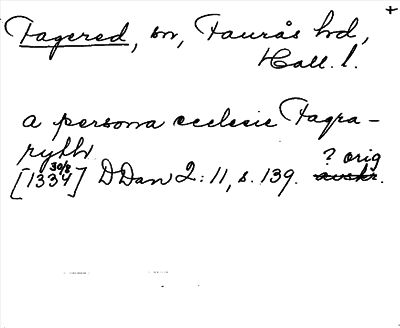 +
Fagered, sn, Faurås hd,
Hall. l.
a persona ecclesie Fagra-
rythr
[1334 30/8] DDan 2:11, s. 139. ? orig
avskr.